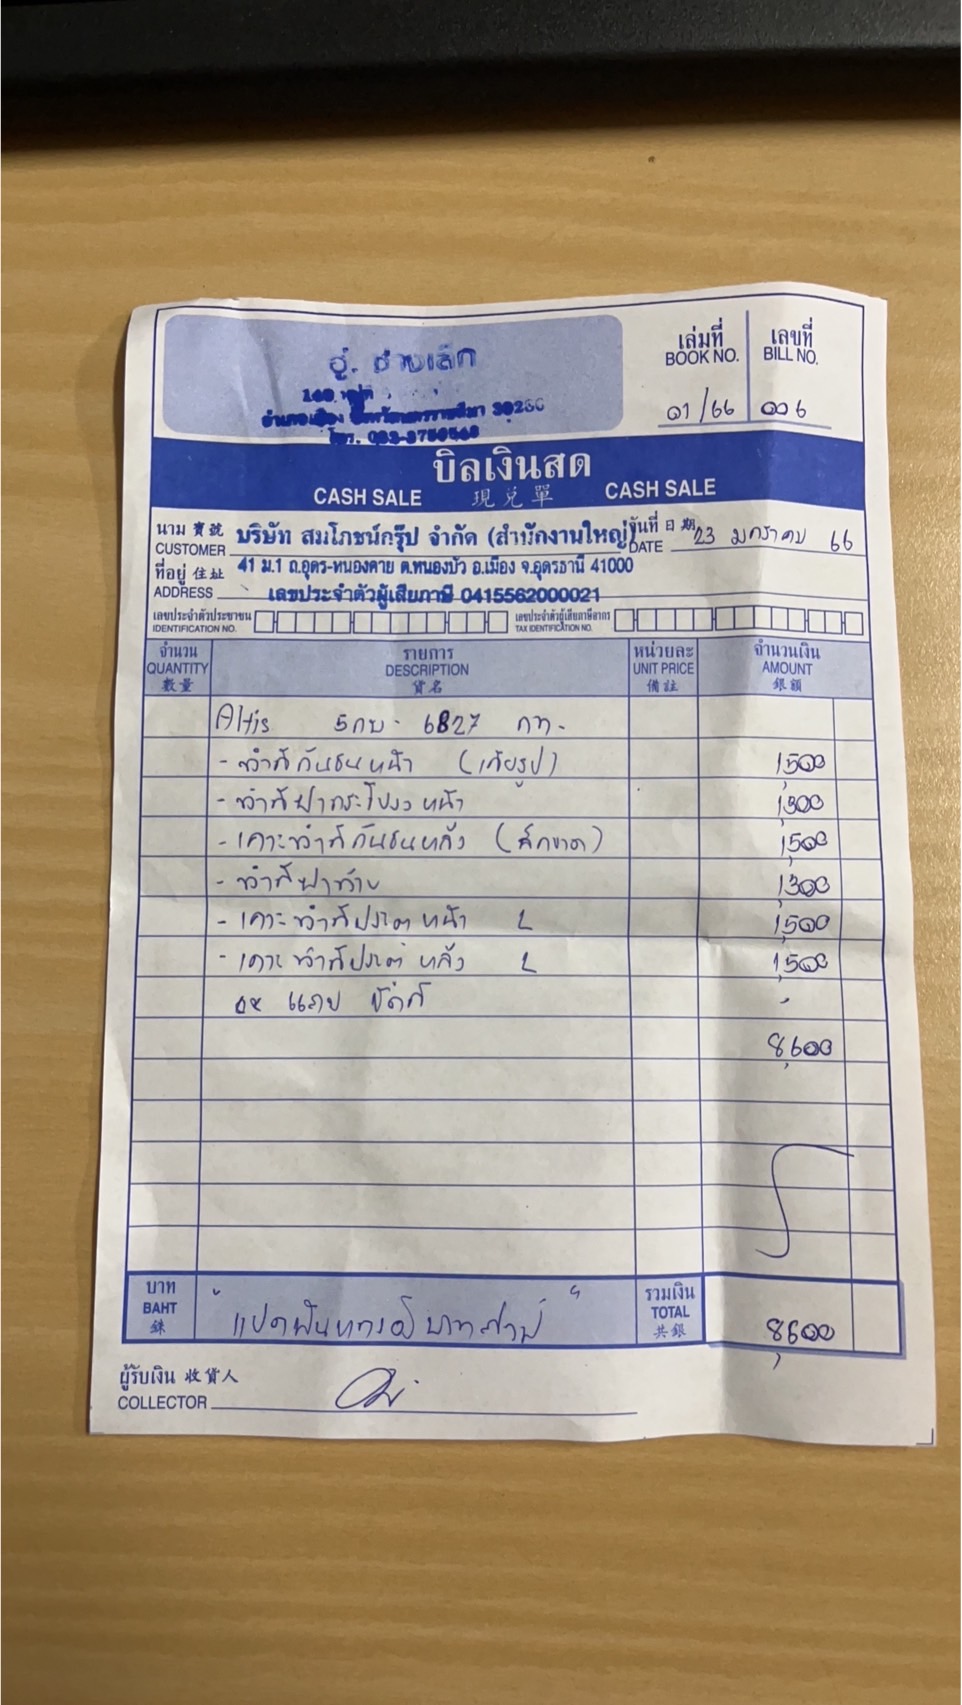 อู่. ช่างเล็ก
อำเภอเมือง จังหวัดนครราชสีมา
โทร.
เล่มที่ เลขที่
BOOK NO. BILL NO.
01/66 006
บิลเงินสด
CASH SALE 現兌單 CASH SALE
นาม 寶號 บริษัท สมโภชน์กรุ๊ป จำกัด (สำนักงานใหญ่) วันที่ 日期 23 มกราคม 66
CUSTOMER DATE
ที่อยู่ 住址 41 ม.1 ถ.อุดร-หนองคาย ต.หนองบัว อ.เมือง จ.อุดรธานี 41000
ADDRESS เลขประจำตัวผู้เสียภาษี 0415562000021
เลขประจำตัวประชาชน เลขประจำตัวผู้เสียภาษีอากร
IDENTIFICATION NO. TAX IDENTIFICATION NO.
จำนวน รายการ หน่วยละ จำนวนเงิน
QUANTITY DESCRIPTION UNIT PRICE AMOUNT
數量 貨名 備註 銀額
Altis 5กบ - 6827 กท.
- ทำสีกันชนหน้า 1,500
- ทำสีฝากระโปรงหน้า 1,300
- เคาะทำสีกันชนหลัง (ฉีกขาด) 1,500
- ทำสีฝาท้าย 1,300
- เคาะทำสีประตูหน้า L 1,500
- เคาะทำสีประตูหลัง L 1,500
แถม ขัดสี -
8,600
บาท รวมเงิน
BAHT "แปดพันหกร้อยบาทถ้วน" TOTAL 8,600
銖 共銀
ผู้รับเงิน 收貨人
COLLECTOR